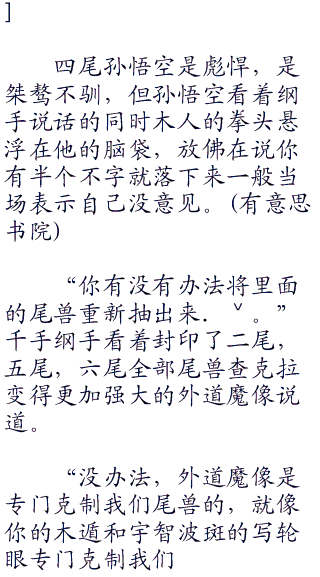 ]
四尾孙悟空是彪悍，是
桀骜不驯，但孙悟空看着纲
手说话的同时木人的拳头悬
浮在他的脑袋，放佛在说你
有半个不字就落下来一般当
场表示自己没意见。(有意思
书院)
“你有没有办法将里面
的尾兽重新抽出来．ˇ。”
千手纲手看着封印了二尾，
五尾，六尾全部尾兽查克拉
变得更加强大的外道魔像说
道。
“没办法，外道魔像是
专门克制我们尾兽的，就像
你的木遁和宇智波斑的写轮
眼专门克制我们